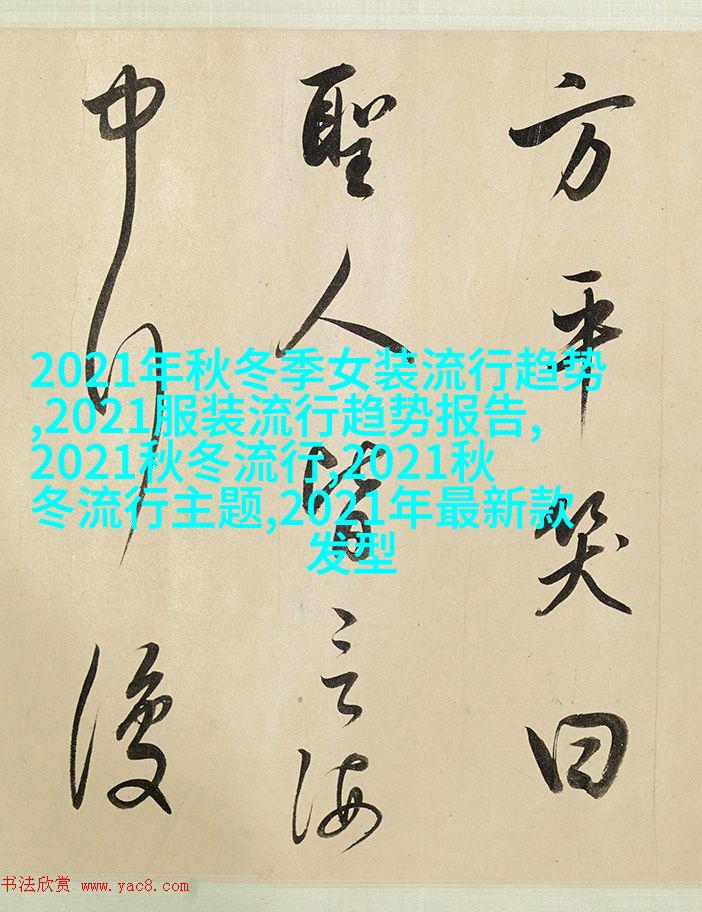 方平笑曰
聖人皆言海
中行復
2021年秋冬季女装流行趋势
,2021服装流行趋势报告,
2021秋冬流行,2021秋
冬流行主题,2021年最新款
发型
书法欣赏 www.yac8.com